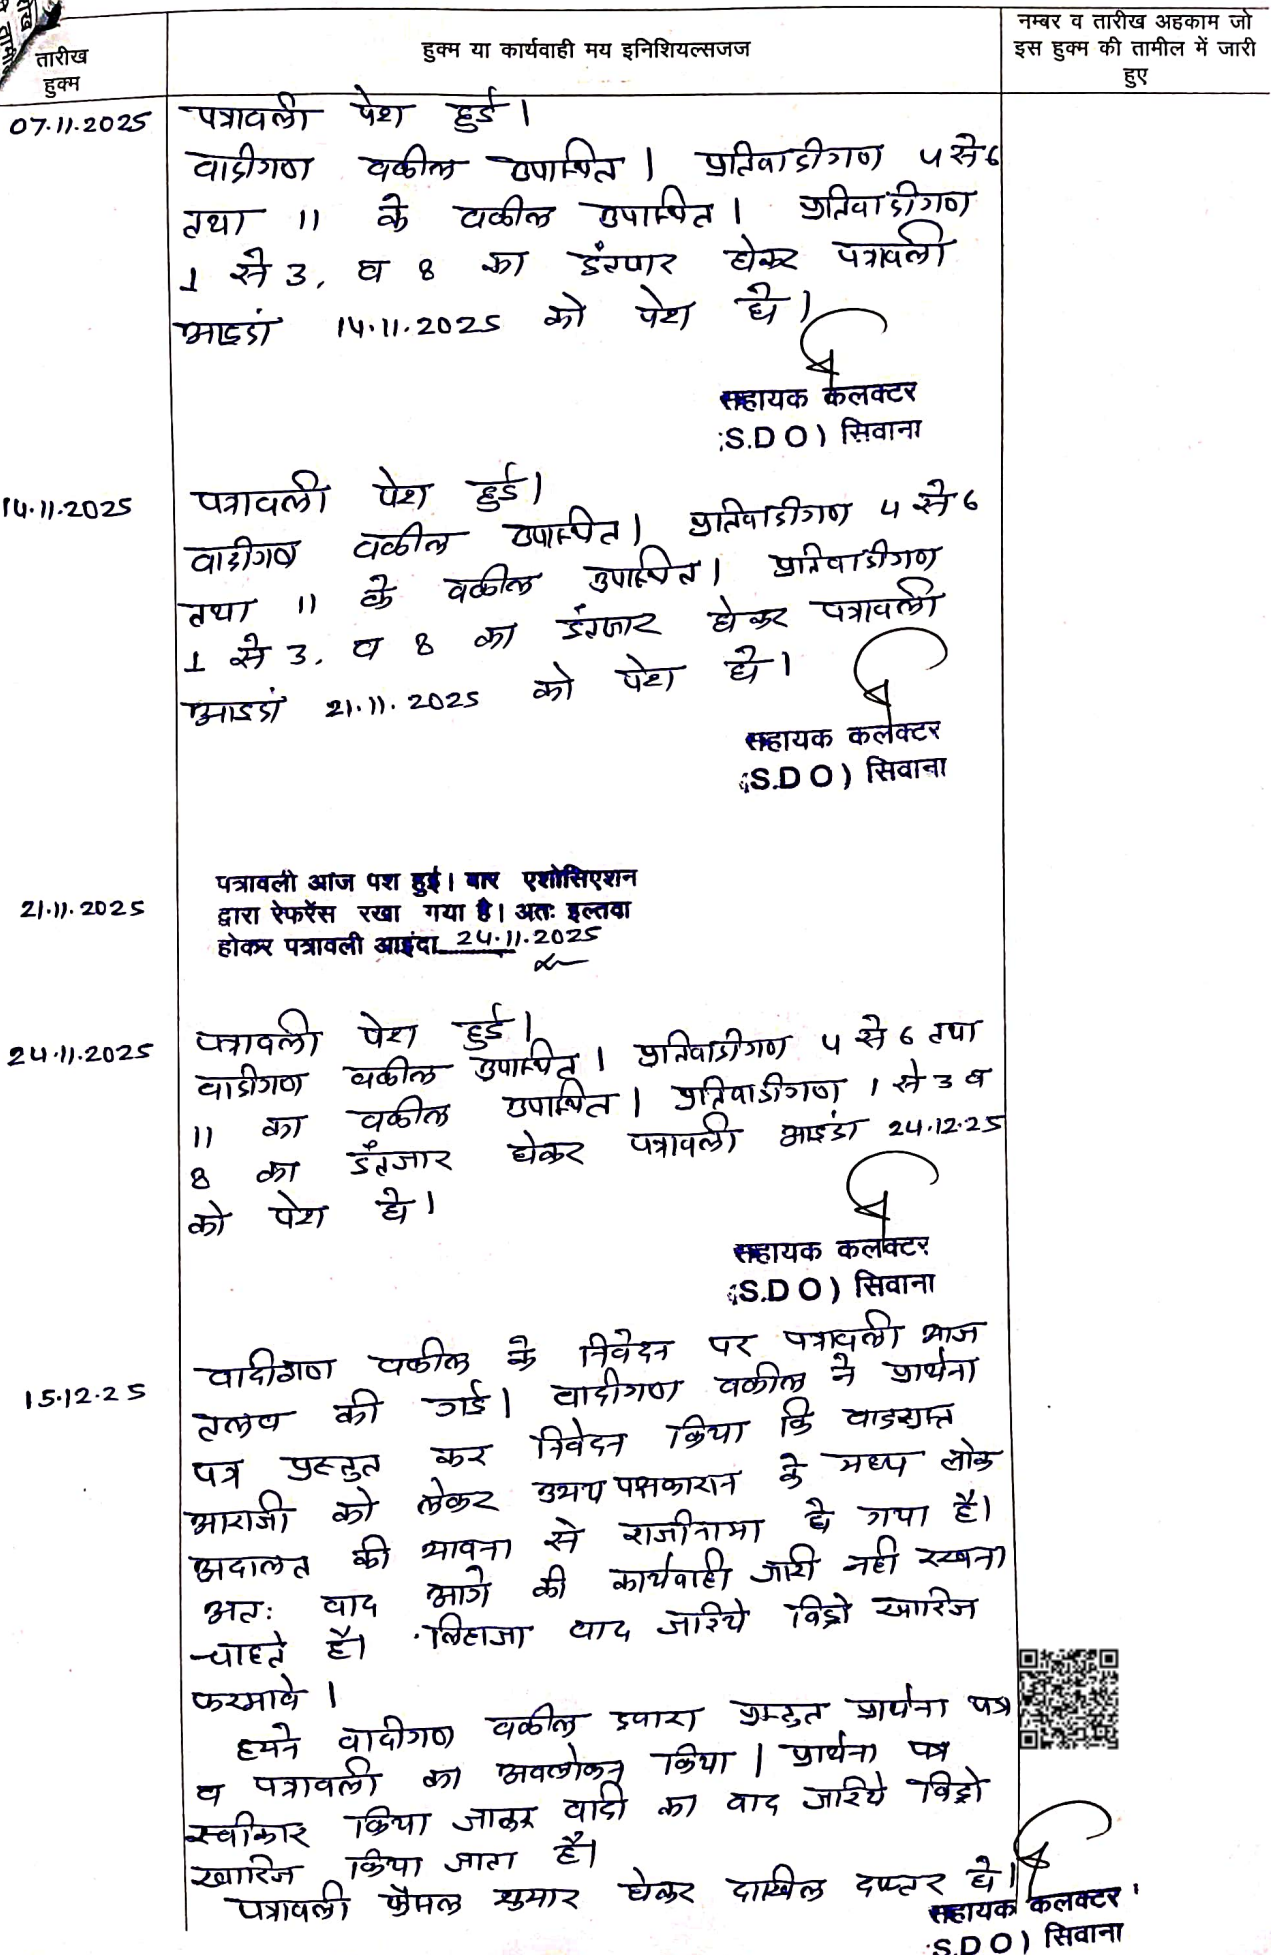 तारीख
हुक्म
हुक्म या कार्यवाही मय इनिशियल्सजज
नम्बर व तारीख अहकाम जो
इस हुक्म की तामील में जारी
हुए
07.11.2025
पत्रावली पेश हुई।
वादीगण वकील उपस्थित। प्रतिवादीगण 4 से 6
तथा 11 के वकील उपस्थित। प्रतिवादीगण
1 से 3, व 8 का इंतजार होकर पत्रावली
आइंदा 14.11.2025 को पेश हो।
सहायक कलक्टर
(S.D.O) सिवाना
14.11.2025
पत्रावली पेश हुई।
वादीगण वकील उपस्थित। प्रतिवादीगण 4 से 6
तथा 11 के वकील उपस्थित। प्रतिवादीगण
1 से 3, व 8 का इंतजार होकर पत्रावली
आइंदा 21.11.2025 को पेश हो।
सहायक कलक्टर
(S.D.O) सिवाना
21.11.2025
पत्रावली आज पेश हुई। बार एशोसिएशन
द्वारा रेफरेंस रखा गया है। अतः इल्तवा
होकर पत्रावली आइंदा 24.11.2025
24.11.2025
पत्रावली पेश हुई।
वादीगण वकील उपस्थित। प्रतिवादीगण 4 से 6 तथा
11 का वकील उपस्थित। प्रतिवादीगण 1 से 3 व
8 का इंतजार होकर पत्रावली आइंदा 24.12.25
को पेश हो।
सहायक कलक्टर
(S.D.O) सिवाना
15.12.25
वादीगण वकील के निवेदन पर पत्रावली आज
तलब की गई। वादीगण वकील ने प्रार्थना
पत्र प्रस्तुत कर निवेदन किया कि वादग्रस्त
आराजी को लेकर उभय पक्षकारान के मध्य लोक
अदालत की भावना से राजीनामा हो गया है।
अतः वाद आगे की कार्यवाही जारी नही रखना
चाहते है। लिहाजा वाद जरिये विड्रो खारिज
फरमावे।
हमने वादीगण वकील द्वारा प्रस्तुत प्रार्थना पत्र
व पत्रावली का अवलोकन किया। प्रार्थना पत्र
स्वीकार किया जाकर वादी का वाद जरिये विड्रो
खारिज किया जाता है।
पत्रावली फैसल शुमार होकर दाखिल दफ्तर हो।
सहायक कलक्टर
(S.D.O) सिवाना